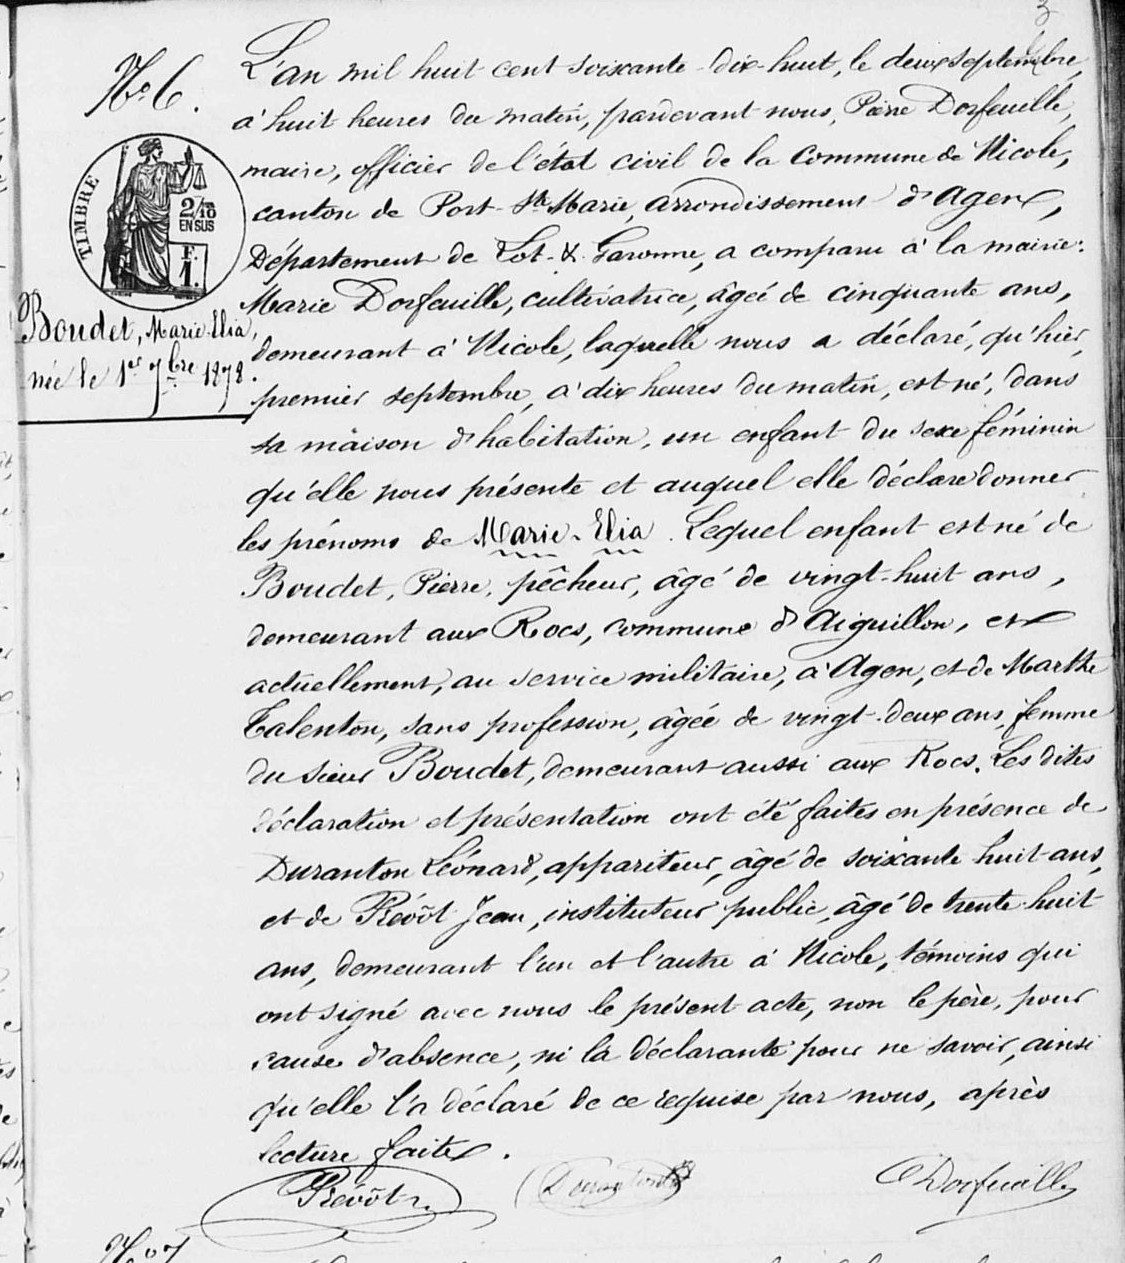 3
No 6.
TIMBRE
2/10
EN SUS
F.
1.
Boudet, Marie Elia,
née le 1er 7bre 1878.
L'an mil huit cent soixante-dix-huit, le deux septembre,
à huit heures du matin, pardevant nous, Pierre Dorfeuille,
maire, officier de l'état civil de la commune de Nicole,
canton de Port-Ste Marie, arrondissement d'Agen,
Département de Lot-&-Garonne, a comparu à la mairie:
Marie Dorfeuille, cultivatrice, âgée de cinquante ans,
demeurant à Nicole, laquelle nous a déclaré, qu'hier,
premier septembre, à dix heures du matin, est né, dans
sa maison d'habitation, un enfant du sexe féminin
qu'elle nous présente et auquel elle déclare donner
les prénoms de Marie-Elia. Lequel enfant est né de
Boudet, Pierre, pêcheur, âgé de vingt-huit ans,
demeurant aux Rocs, commune d'Aiguillon, et
actuellement, au service militaire, à Agen, et de Marthe
Talenton, sans profession, âgée de vingt-deux ans, femme
du sieur Boudet, demeurant aussi aux Rocs. Les dites
déclaration et présentation ont été faites en présence de
Duranton Léonard, appariteur, âgé de soixante huit ans,
et de Prévôt Jean, instituteur public, âgé de trente-huit
ans, demeurant l'un et l'autre à Nicole, témoins qui
ont signé avec nous le présent acte, non le père, pour
cause d'absence, ni la déclarante pour ne savoir, ainsi
qu'elle l'a déclaré de ce requise par nous, après
lecture faite.
Prévôt Duranton Dorfeuille
No 7